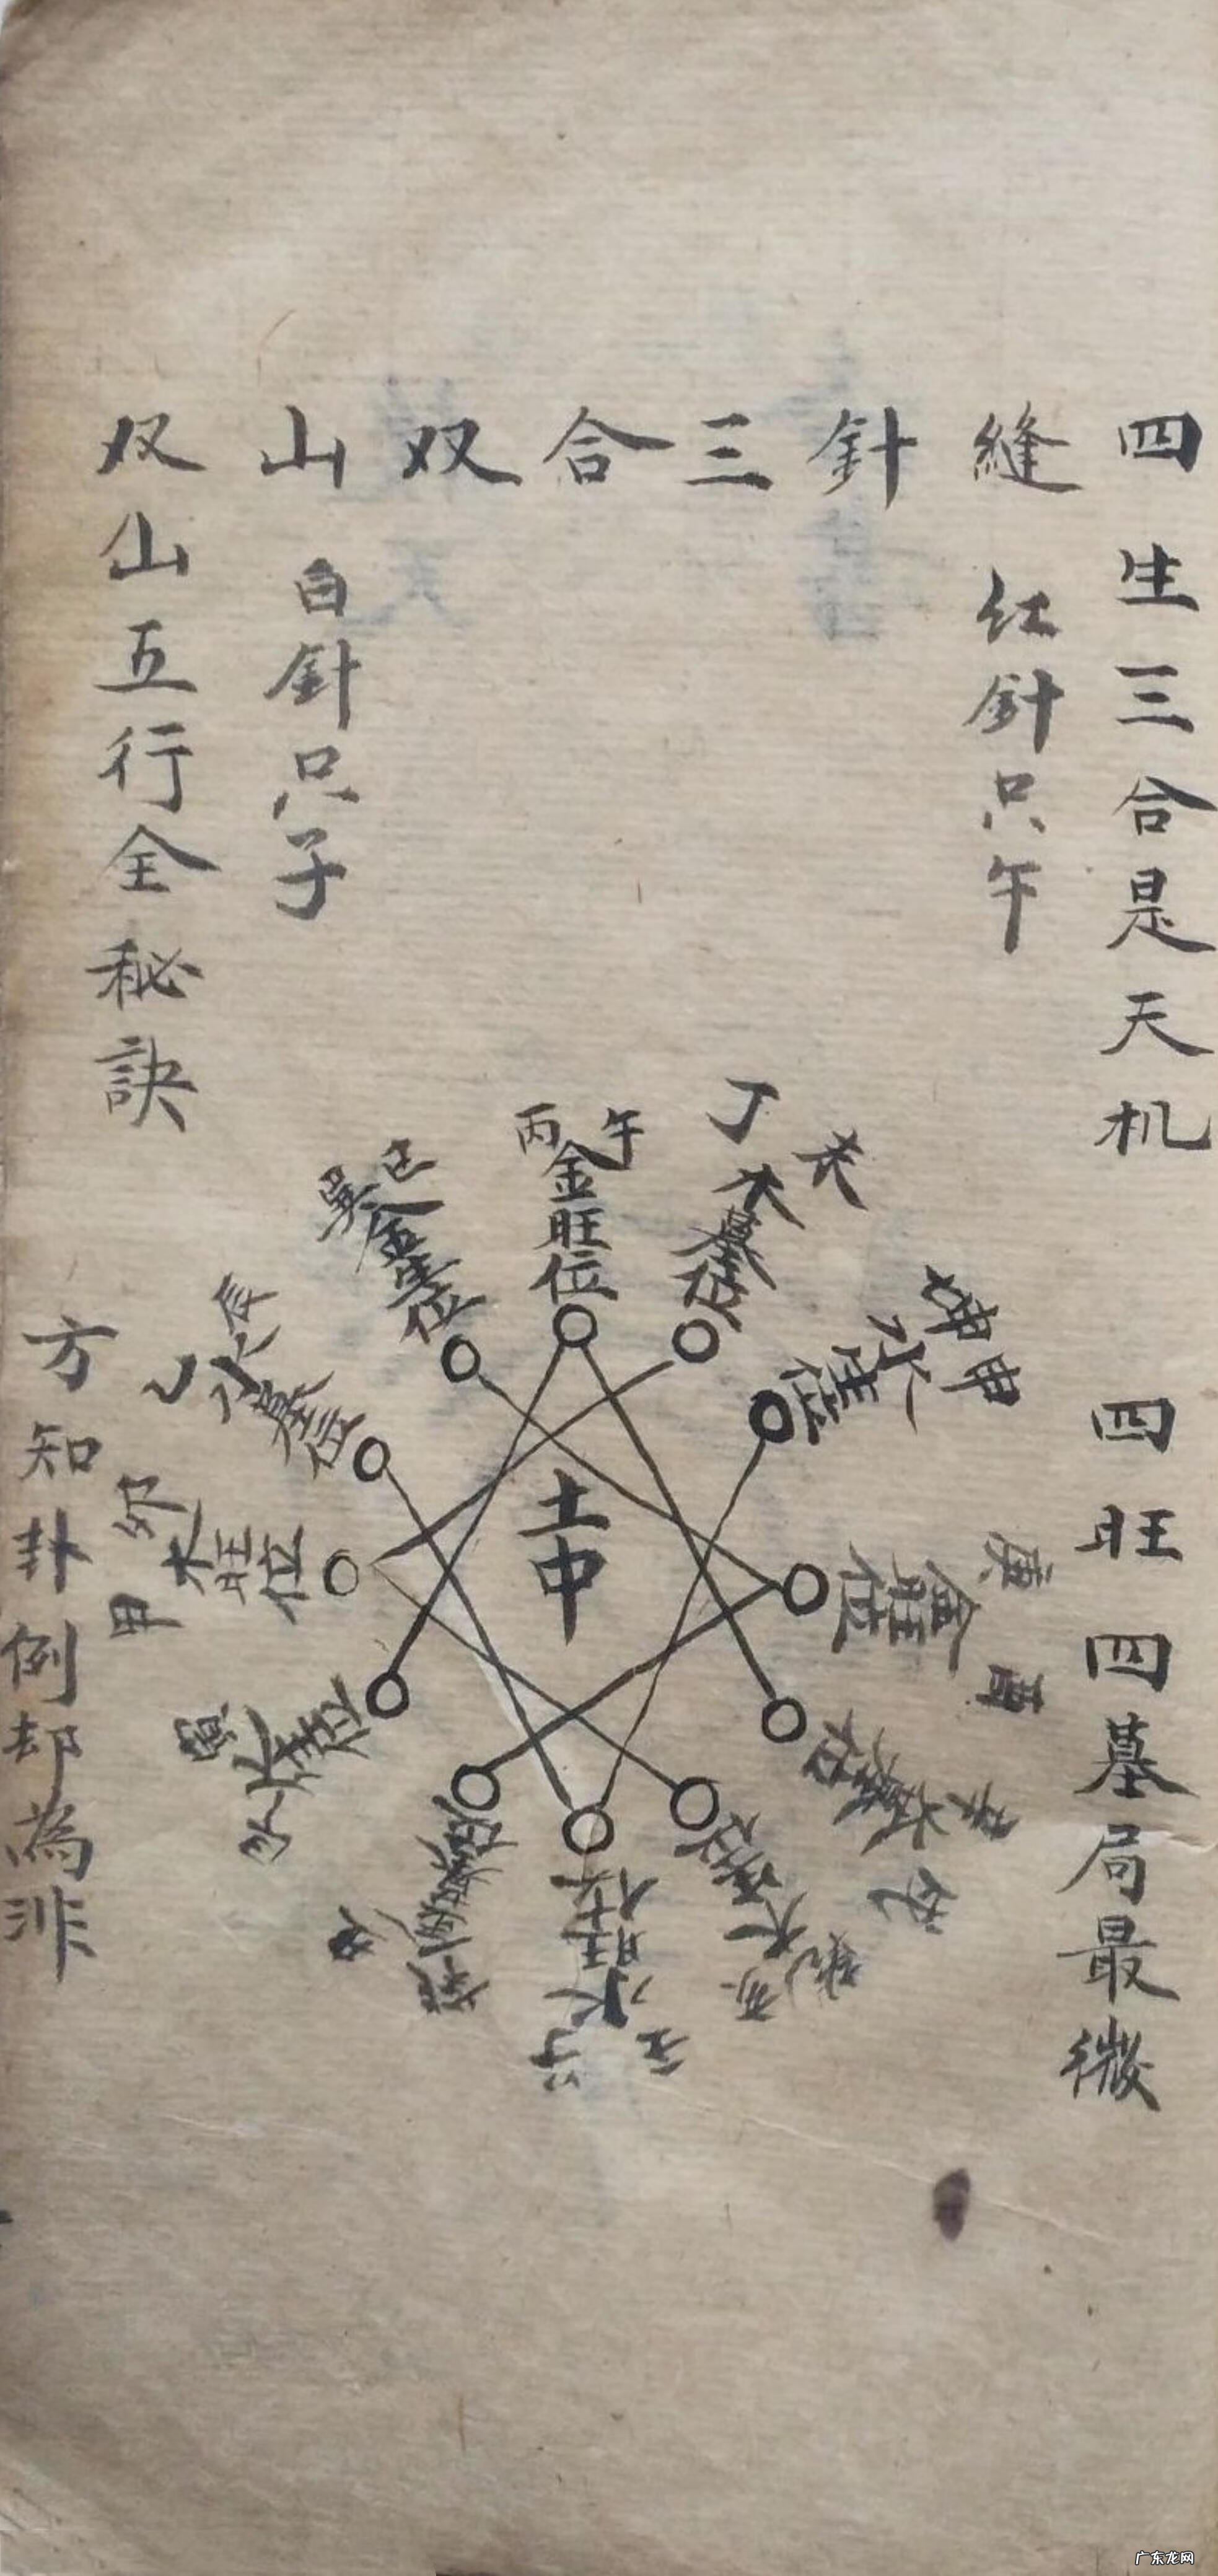 四生三合是天机
四旺四墓局最微
縫針三合双山
红針只午
白針只子
双山五行全秘訣
方知卦例却為非
土中
丙午
金旺位
丁未
木墓位
坤申
水生位
庚酉
金旺位
辛戌
位
乾亥
木生位
壬子
水旺位
癸丑
位
艮寅
火生位
甲卯
木旺位
乙辰
水墓位
巽巳
金生位
广东龙网